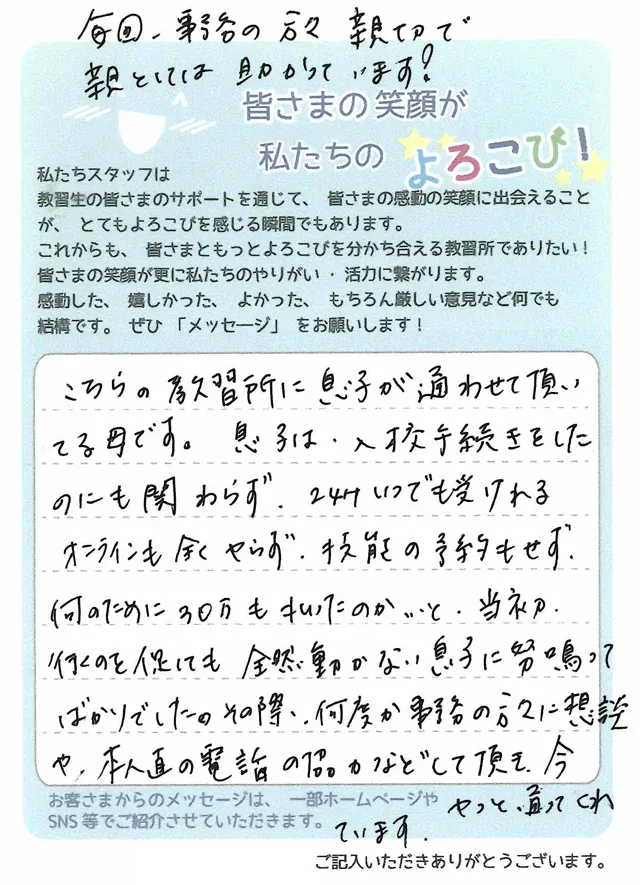 毎回、事務の方々 親切で
親としては 助かっています!
皆さまの笑顔が
私たちの よろこび!
私たちスタッフは
教習生の皆さまのサポートを通じて、 皆さまの感動の笑顔に出会えること
が、 とてもよろこびを感じる瞬間でもあります。
これからも、 皆さまともっとよろこびを分かち合える教習所でありたい!
皆さまの笑顔が更に私たちのやりがい ・ 活力に繋がります。
感動した、 嬉しかった、 よかった、 もちろん厳しい意見など何でも
結構です。 ぜひ 「メッセージ」 をお願いします!
こちらの 教習所に 息子が 通わせて 頂い
てる 母です。 息子は、入校手続きをした
のにも 関わらず、24Hいつでも受けれる
オンラインも 全く やらず、技能の 予約もせず、
何のために 30万も 払いたのか…と、当初、
行くのを 促しても 全然動かない 息子に 怒鳴って
ばかりでした。その際、何度か 事務の方々に 想談
や、本人直の 電話 の協力などして頂き、今
やっと、通ってくれ
ています。
お客さまからのメッセージは、 一部ホームページや
SNS 等でご紹介させていただきます。
ご記入いただきありがとうございます。